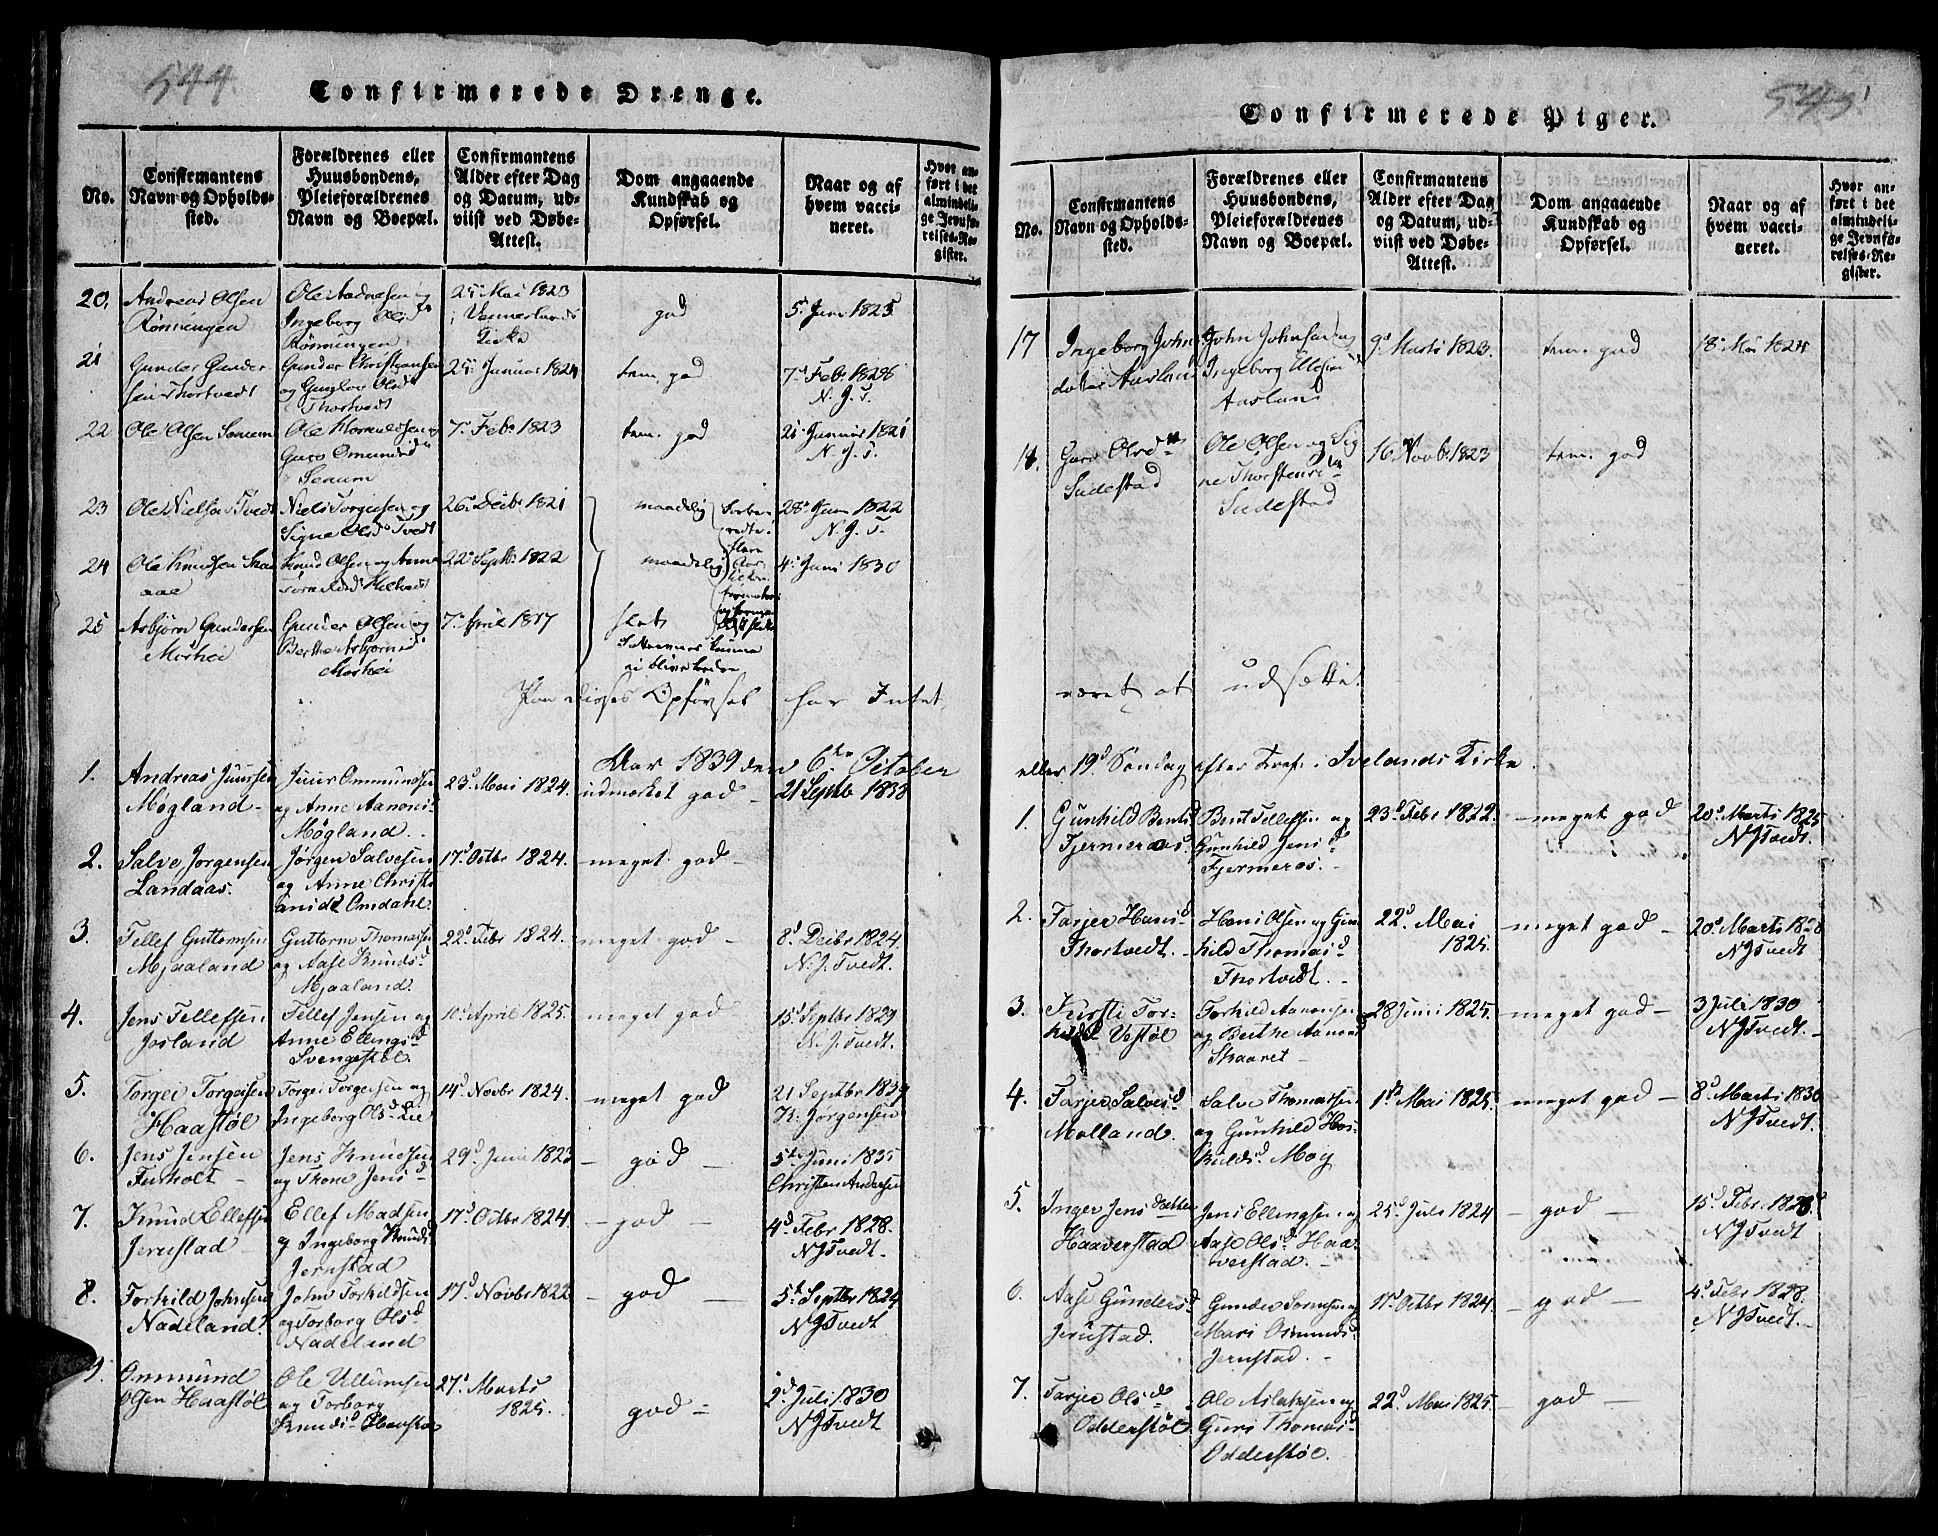 544.
Confirmerede Drenge.
No.
Confirmantens
Navn og Opholds-
sted.
Forældrenes eller
Huusbondens,
Pleieforældrenes
Navn og Boepæl.
Confirmantens
Alder efter Dag
og Datum, ud-
viist ved Døbe-
Attest.
Dom angaaende
Kundskab og
Opførsel.
Naar og af
hvem vacci-
neret.
Hvor an-
ført i det
almindeli-
ge Jevnfø-
relses-Re-
gister.
20.
Andreas Olsen
Rönningen
Ole Andresen og
Ingeborg Olsd
Rönningen
25 Mai 1823
i Vennerlands
Kirke
god
5 Juni 1825
21
Gunder Gunder
sen Thortvedt
Gunder Christiansen
og Gunlov Olsd
Thortvedt
25 Januar 1824
tem. god
7 Feb. 1826
N. J. T.
22
Ole Olsen Senum
Ole
Guro Omunds
Senum
7 Feb. 1823
tem. god
21 Januar 1821
N. J. T.
23
Ole Nielsen Tvedt
Niels Jørgensen og
Signe Olsd Tvedt
26 Decbr 1821
maadelig
28 Juni 1822
N. J. T.
24
Ole Knudsen
aae
Knud Olsen og Anne
22 Septb. 1822
maadelig
4 Juni 1830
25
Asbjørn Gundersen
Mørkei
Gunder Olsen og
Berthe Asbjørnsd
Mørkei
7 April 1817
slet
Paa disses Opförsel har Intet
Aar 1839 den 6te October
1.
Andreas Juursen
Møgland
Juur Ommundsen
og Anne Aanonsd
Møgland
23d Mai 1824.
udmærket god
21 Septb 1838
2.
Salve Jorgensen
Landaas.
Jørgen Salvesen
og Anne Christi
ansd Omdahl
17d Octbr 1824.
meget god
3.
Tellef Guttormsen
Mjaaland
Guttorm Thomassen
og Aase Knudsd
Mjaaland.
22d Febr 1824.
meget god
8d Decbr 1824.
N. J. Tvedt.
4.
Jens Tellefsen
Josland
Tellef Jensen og
Anne Ellingsd
Svengestöl
10d April 1825.
meget god
15d Septbr 1829
N. J. Tvedt.
5.
Torgei Torgeisen
Haastøl
Torgei Torgeisen og
Ingeborg Olsd Lie
14d Novbr 1824.
meget god
21 Septbr 1839
K. Jørgensen
6.
Jens Jensen
Furholt
Jens Knudsen
og Thone Jensd
29d Juni 1823
god
5te Juni 1835
Christen Andersen
7.
Knud Ellefsen
Jerustad
Ellef Madsen
og Ingeborg Knuds
Jerustad
17d Octbr 1824.
god
4d Febr 1828.
NJTvedt
8.
Torkild Johnsen
Nadeland
John Torkildsen
og Torborg Olsd
Nadeland
17d Novbr 1822
god
5te Septbr 1824
NJTvedt
9.
Ommund
Olsen Haastøl
Ole Ullumsen
og Torborg
Knudsd Haastøl
27d Marts
1825.
god
2d Juli 1830
NJTvedt
545
Confirmerede Piger.
No.
Confirmantens
Navn og Opholds-
sted.
Forældrenes eller
Huusbondens,
Pleieforældrenes
Navn og Boepæl.
Confirmantens
Alder efter Dag
og Datum, ud-
viist ved Døbe-
Attest.
Dom angaaende
Kundskab og
Opførsel.
Naar og af
hvem vacci-
neret.
Hvor an-
ført i det
almindeli-
ge Jevnfø-
relses-Re-
gister.
17
Ingeborg Johns
dotter Aasland
John Johnsen og
Ingeborg
Aasland
9d Marts 1823.
tem. god
18 Mai 1824
Guro Olsd
Sudestad
Ole Olsen og Sig
ne Thorstensd
Sudestad
16 Novb. 1823
tem. god
været at udsætte
eller 19d Søndag efter Tref. i Ivelands Kirke
1.
Gunhild Bentsd
Fjermeros
Bent Tellefsen og
Gunhild Jensd
Fjermeros.
23d Febr 1822.
meget god
20d Marts 1825
NJTvedt.
2.
Tarjer Hansd
Thortvedt.
Hans Olsen og Gun
hild Thomasd
Thortvedt
22d Mai
1825.
meget god
20d Marts 1828
NJTvedt
3.
Kirsti Tor-
Vestøl
Torkild Aanonsen
og Berthe Aanonsd
Skaaret
28 Juni 1825.
meget god
3 Juli 1830
NJTvedt.
4.
Tarjer Salvesd
Molland.
Salve Thomassen
og Gunhild Hos-
kuldsd Moy
1ste Mai 1825.
meget god
8d Marts 1830
NJTvedt.
5.
Inger Jens Datter
Haaverstad
Jens Ellingsen og
Aase Olsd Haa-
verstad.
25d Juli 1824
god
15d Febr. 1828
NJTvedt
6.
Aase Gundersd
Jerustad.
Gunder og
Mari Osmundsd
Jerustad.
17d Octbr 1824.
god
4d Febr 1828.
NJTvedt.
7.
Tarjer Olsd
Odderstöl
Ole Aslaksen og
Guri Thomasd
Odderstøl.
22d Mai 1825.
god